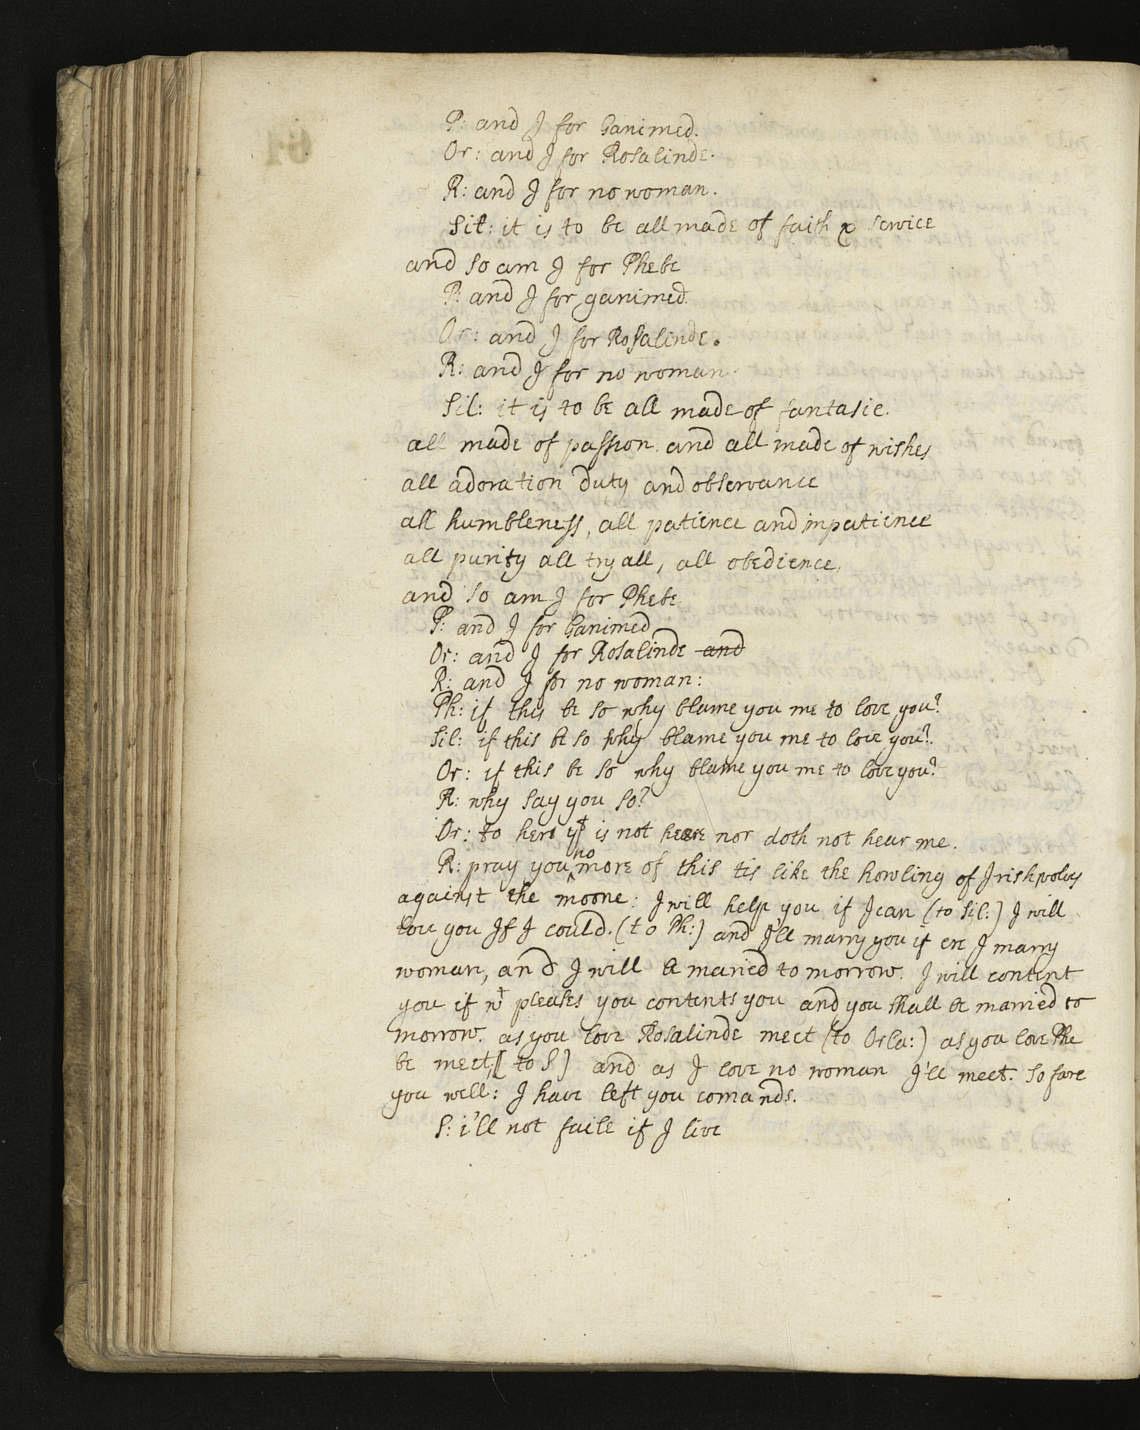 P: and I for Ganimed.
Or: and I for Rosalinde.
R: and I for no woman.
Sil: it is to be all made of faith & service
and so am I for Phebe
P: and I for ganimed
Or: and I for Rosalinde.
R: and I for no woman.
Sil: it is to be all made of fantasie.
all made of passion and all made of wishes
all adoration duty and observance
all humbleness, all patience and inpatience
all purity all tryall, all obedience,
and so am I for Phebe
P: and I for Ganimed
Or: and I for Rosalinde and
R: and I for no woman:
Ph: if this be so why blame you me to love you?
Sil: if this be so why blame you me to love you?
Or: if this be so why blame you me to love you?
R: why say you so?
Or: to her yt is not heere nor doth not hear me.
R: pray you no more of this tis like the howling of Irish wolvs
against the moone: I will help you if I can (to Sil:) I will
love you If I could. (to Ph:) and I'll marry you if ere I marry
woman, and I will be maried to morrow. I will content
you if wt pleases you contents you and you shall be married to
morrow. as you love Rosalinde meet (to Orla:) as you love Phe
be meet [to S] and as I love no woman I'll meet. so fare
you well: I have left you comands.
S: i'll not faile if I live